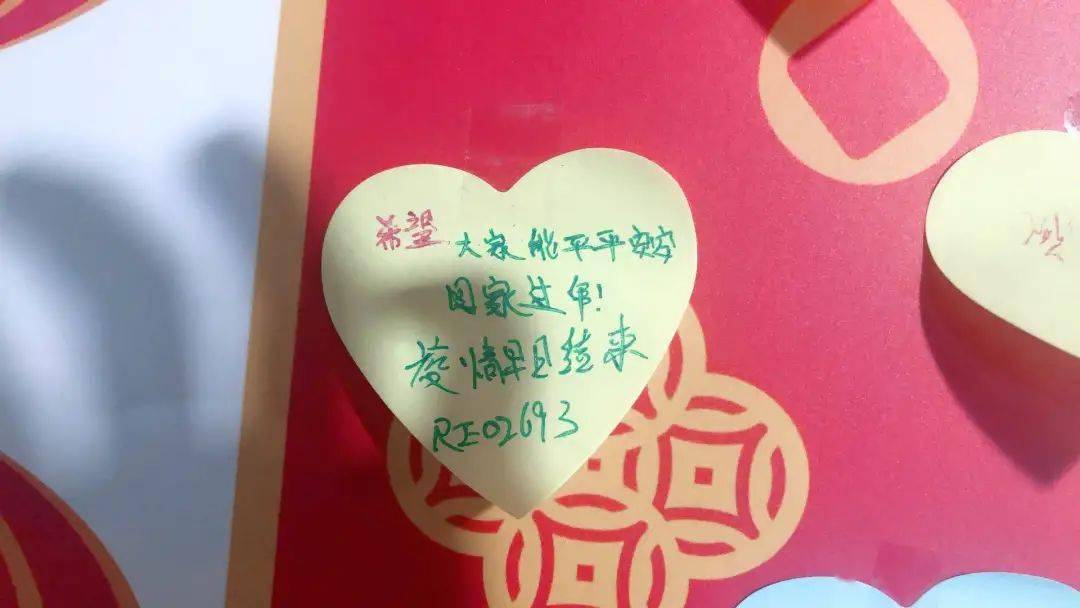 希望 大家能平平安安
回家过年!
疫情早日结束
RE02693